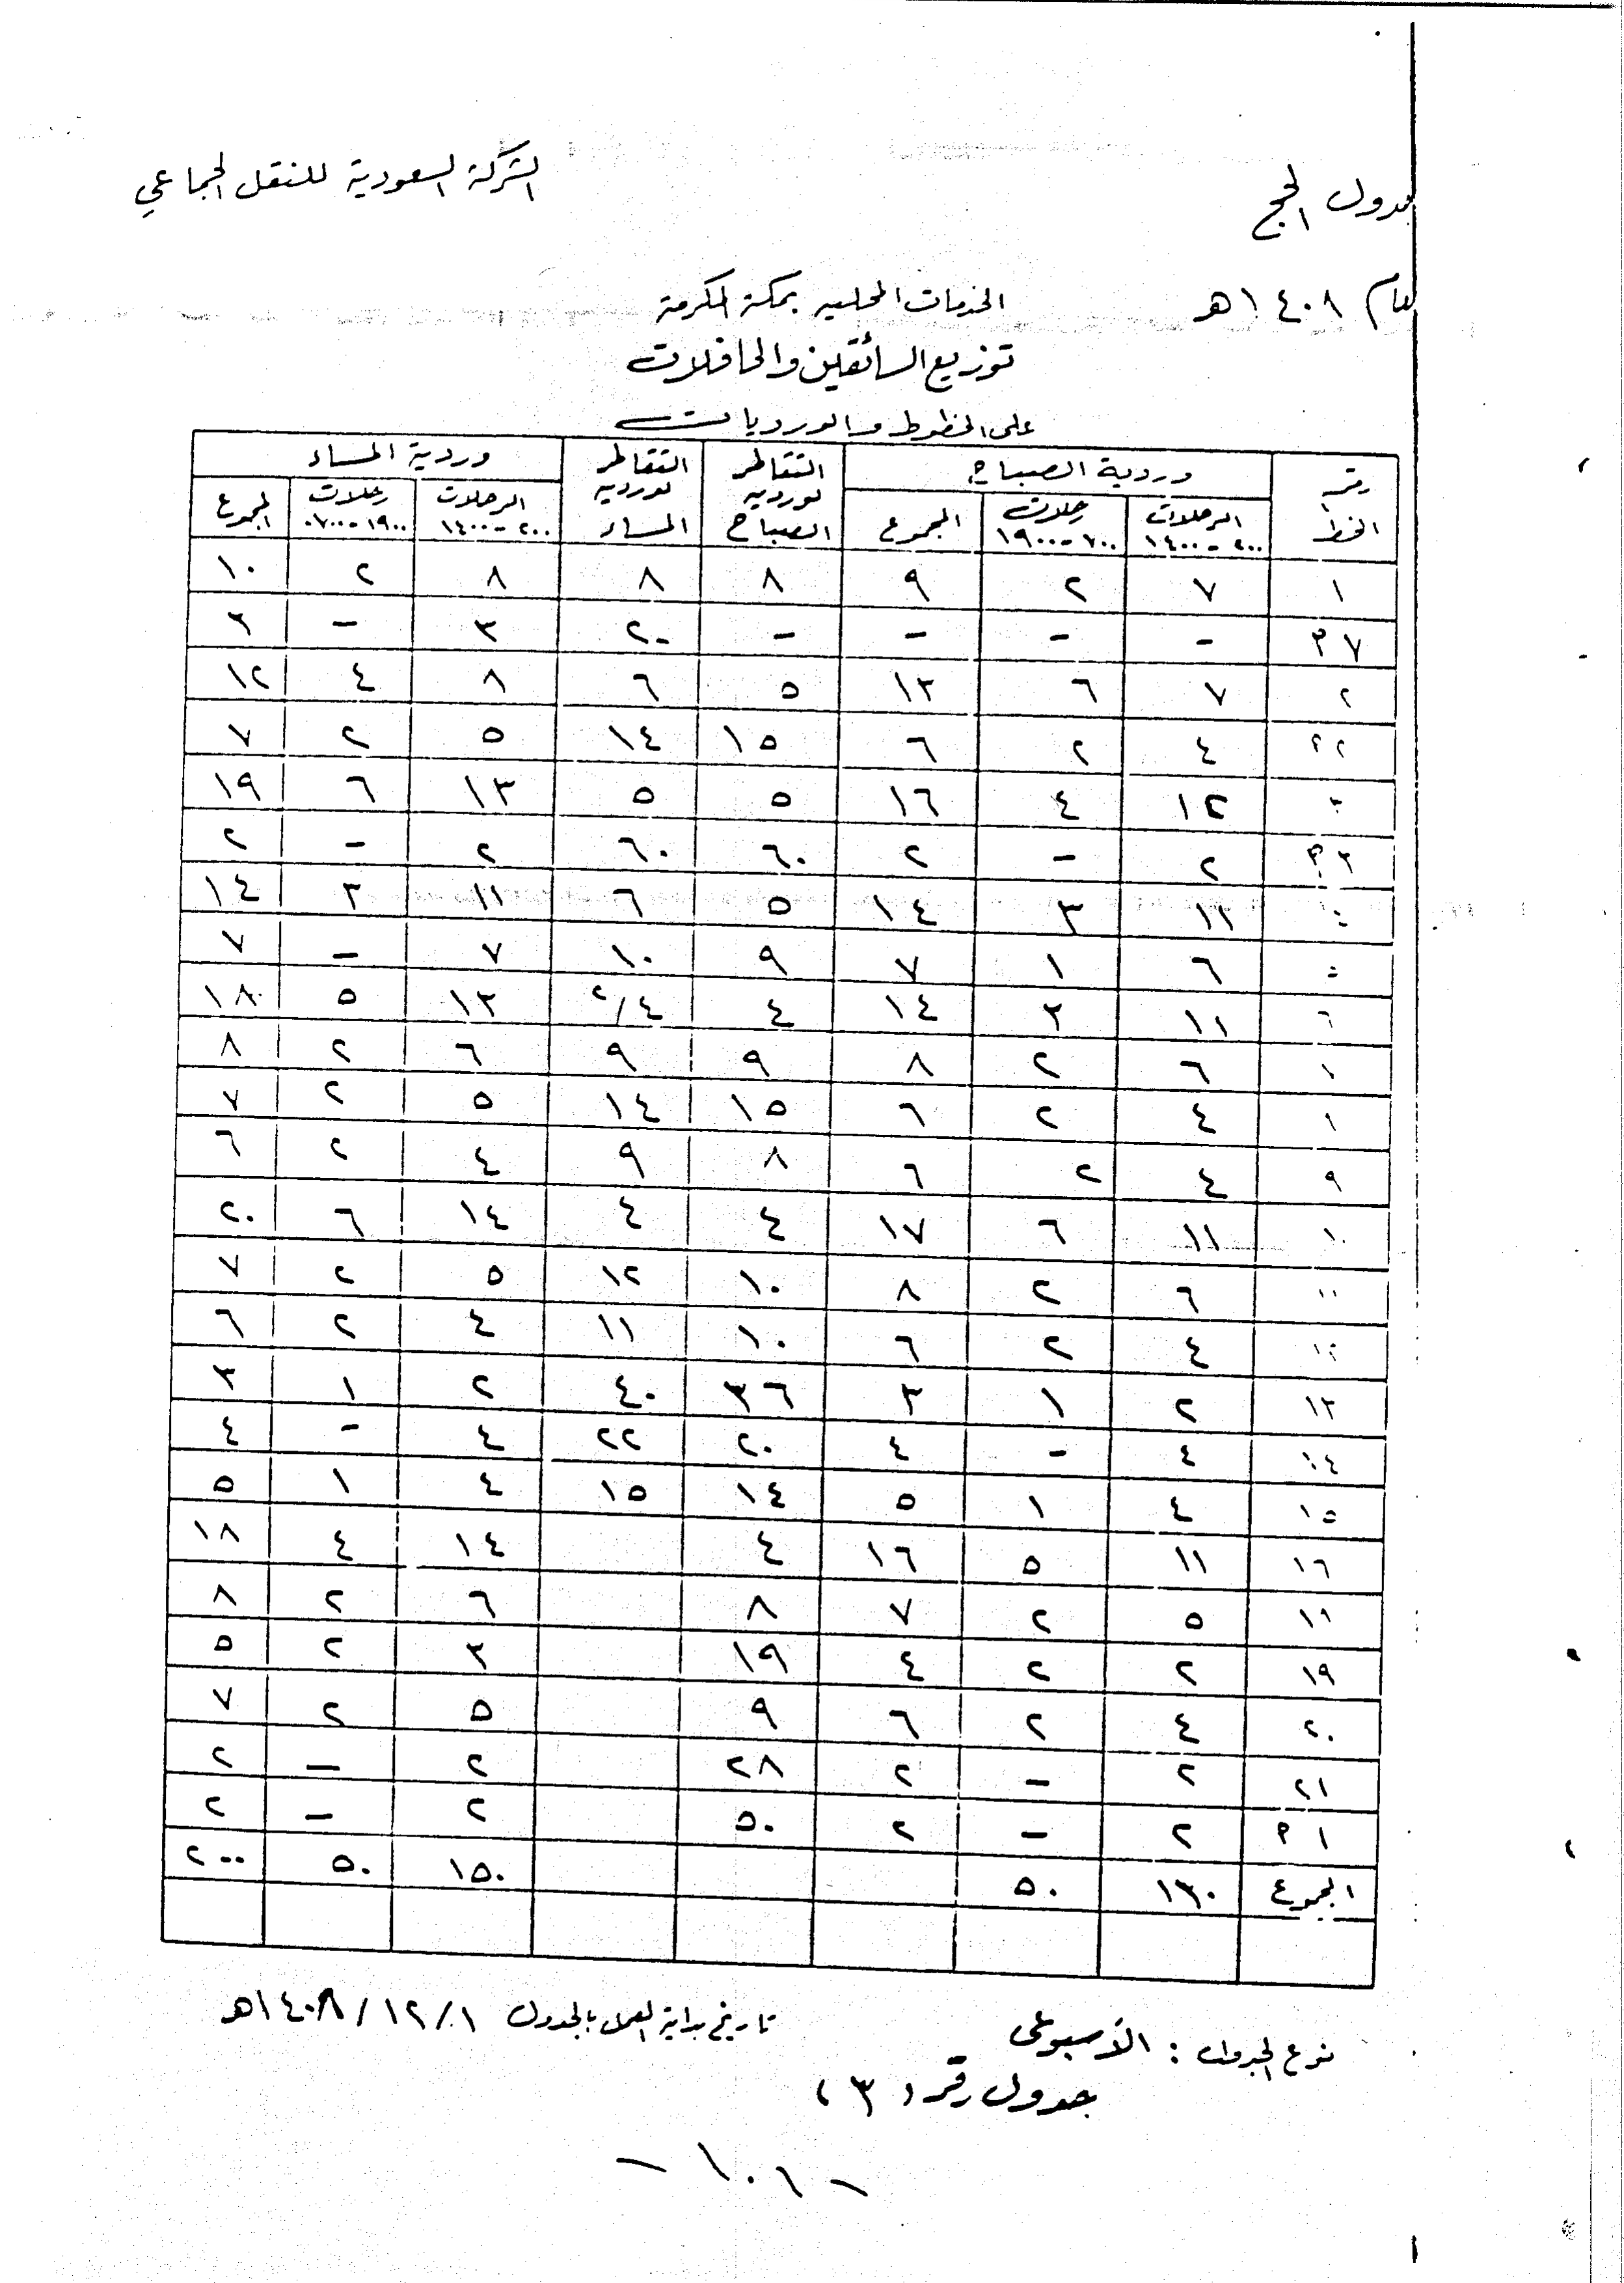 الشركة السعودية للنقل الجماعي
جدول الحج
لعام ١٤٠٨هـ
الخدمات المحلية بمكة المكرمة
توزيع السائقين والحافلات
على الخطوط والورديات
رقم الخط | وردية الصباح | التقاطر لوردية الصباح | التقاطر لوردية المساء | وردية المساء
الرحلات ٢٠٠-١٤٠٠ | رحلات ٧٠٠-١٩٠٠ | المجموع | الرحلات ٢٠٠-١٤٠٠ | رحلات ١٩٠٠-٠٧٠٠ | المجموع
١ | ٧ | ٢ | ٩ | ٨ | ٨ | ٨ | ٢ | ١٠
٧ م | - | - | - | - | ٢٠ | ٣ | - | ٣
٢ | ٧ | ٦ | ١٣ | ٥ | ٦ | ٨ | ٤ | ١٢
٢ م | ٤ | ٢ | ٦ | ١٥ | ١٤ | ٥ | ٢ | ٧
٣ | ١٢ | ٤ | ١٦ | ٥ | ٥ | ١٣ | ٦ | ١٩
٣ م | ٢ | - | ٢ | ٦٠ | ٦٠ | ٢ | - | ٢
١١ | ٣ | ١٤ | ٥ | ٦ | ١١ | ٣ | ١٤
٥ | ٦ | ١ | ٧ | ٩ | ١٠ | ٧ | - | ٧
٦ | ١١ | ٣ | ١٤ | ٤ | ٢/٤ | ١٣ | ٥ | ١٨
٦ | ٢ | ٨ | ٩ | ٩ | ٦ | ٢ | ٨
٤ | ٢ | ٦ | ١٥ | ١٤ | ٥ | ٢ | ٧
٩ | ٤ | ٢ | ٦ | ٨ | ٩ | ٤ | ٢ | ٦
١٠ | ١١ | ٦ | ١٧ | ٤ | ٤ | ١٤ | ٦ | ٢٠
١١ | ٦ | ٢ | ٨ | ١٠ | ١٢ | ٥ | ٢ | ٧
١٢ | ٤ | ٢ | ٦ | ١٠ | ١١ | ٤ | ٢ | ٦
١٣ | ٢ | ١ | ٣ | ٣٦ | ٤٠ | ٢ | ١ | ٣
١٤ | ٤ | - | ٤ | ٢٠ | ٢٢ | ٤ | - | ٤
١٥ | ٤ | ١ | ٥ | ١٤ | ١٥ | ٤ | ١ | ٥
١٦ | ١١ | ٥ | ١٦ | ٤ | ١٤ | ٤ | ١٨
٥ | ٢ | ٧ | ٨ | ٦ | ٢ | ٨
١٩ | ٢ | ٢ | ٤ | ١٩ | ٣ | ٢ | ٥
٢٠ | ٤ | ٢ | ٦ | ٩ | ٥ | ٢ | ٧
٢١ | ٢ | - | ٢ | ٢٨ | ٢ | - | ٢
١ م | ٢ | - | ٢ | ٥٠ | ٢ | - | ٢
المجموع | ١٣٠ | ٥٠ | ١٥٠ | ٥٠ | ٢٠٠
نوع الجدول : الأسبوعي
تاريخ بداية العمل بالجدول ١/١٢/١٤٠٨هـ
جدول رقم (٣)
- ١٠١ -